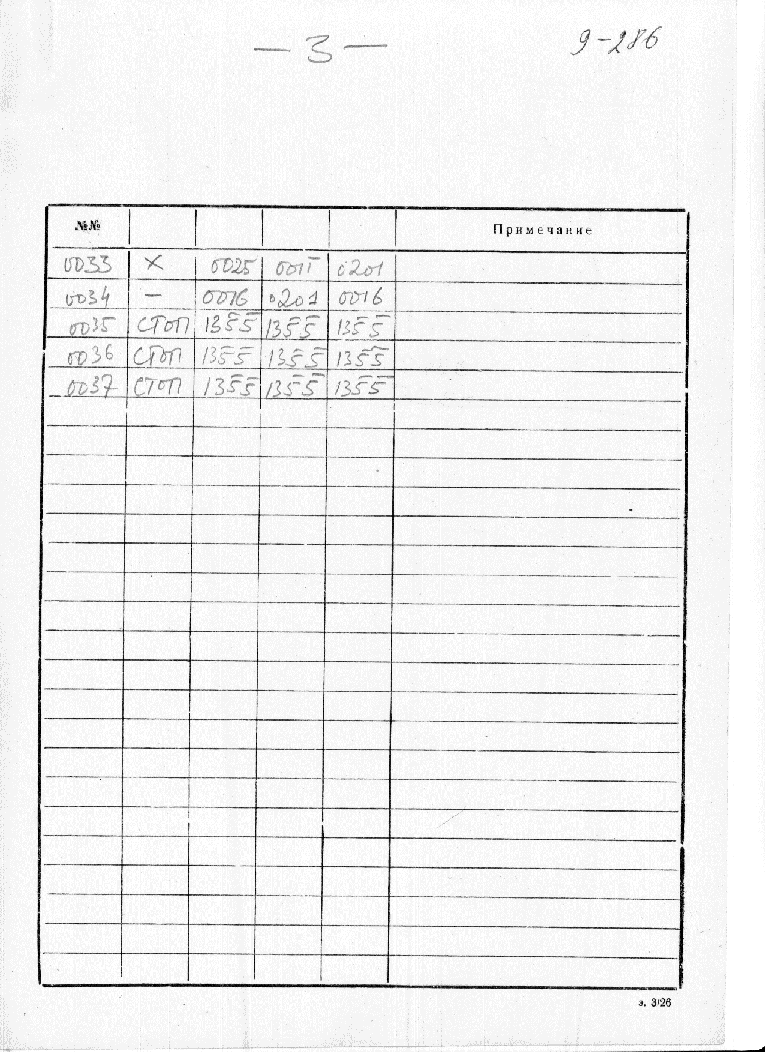 — 3 —
9-286
№№ Примечание
0033 × 0025 0011 0201
0034 — 0016 0201 0016
0035 СТОП 1355 1355 1355
0036 СТОП 1355 1355 1355
0037 СТОП 1355 1355 1355
з. 3126